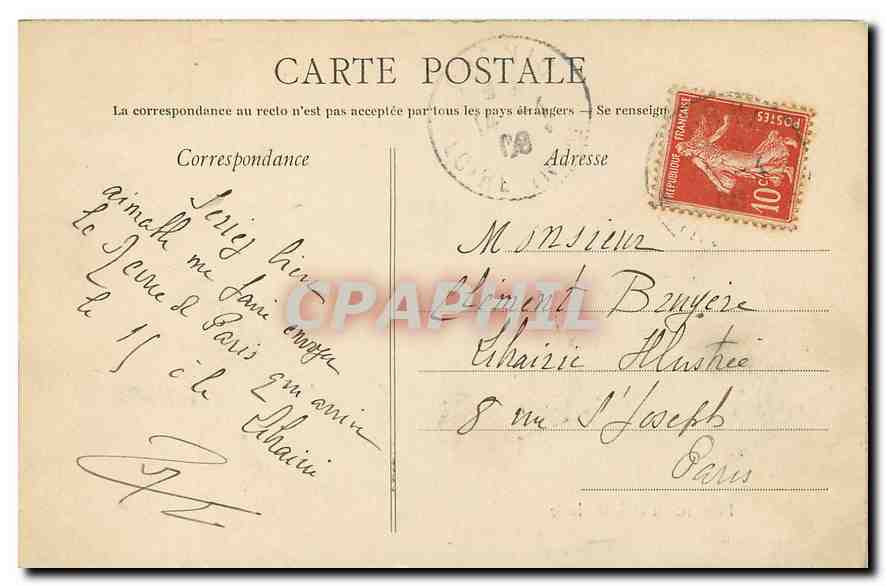 CARTE POSTALE
La correspondance au recto n'est pas acceptée par tous les pays étrangers — Se renseign
Correspondance
Adresse
Seriez bien
aimable me faire envoyer
la Revue de Paris qui arrive
le 15 à la
Librairie
Monsieur
Clément Bruyère
Librairie Illustrée
8 rue St Joseph
Paris
RÉPUBLIQUE FRANÇAISE
POSTES
10c
08
LOIRE
CPARAMA
CPAPHIL